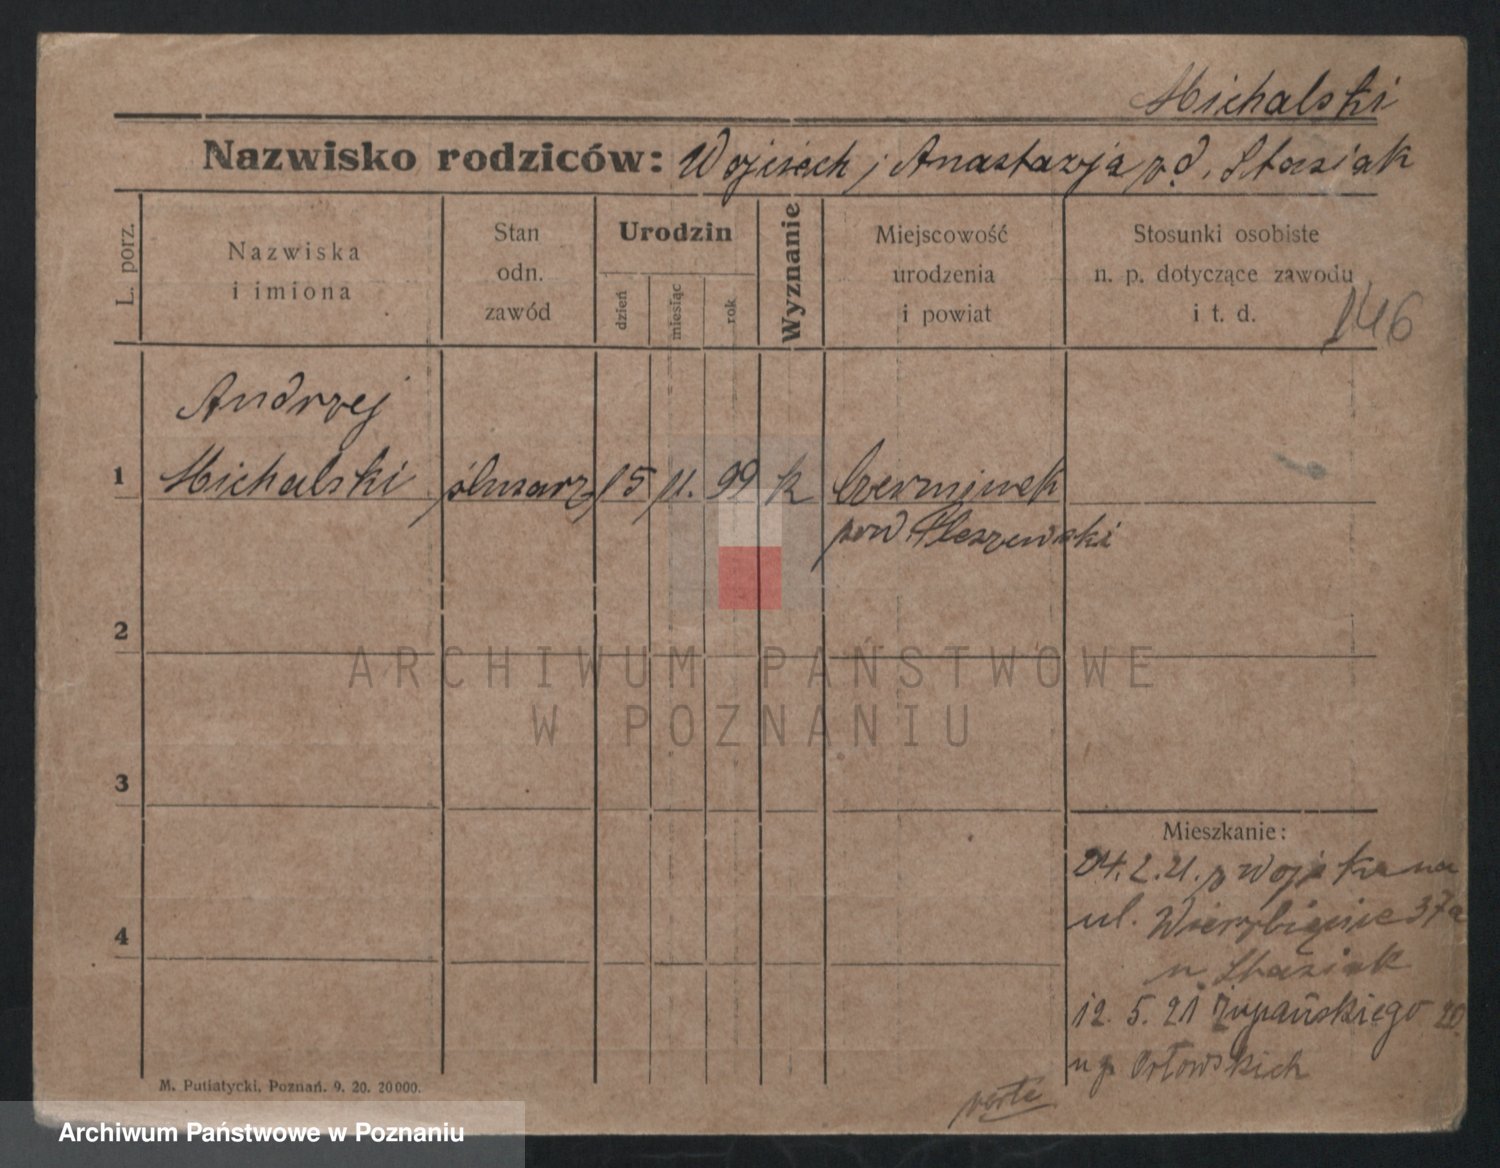 Michalski
Nazwisko rodziców: Wojciech i Anastazja zd. Stasiak
L. porz.
Nazwiska
i imiona
Stan
odn.
zawód
Urodzin
dzień
miesiąc
rok
Wyznanie
Miejscowość
urodzenia
i powiat
Stosunki osobiste
n. p. dotyczące zawodu
i t. d.
146
Andrzej
1 Michalski ślusarz 15 11. 99 k Czerminek
pow Pleszewski
2
ARCHIWUM PAŃSTWOWE
W POZNANIU
3
Mieszkanie:
24.2.21. z wojska na
ul. Wierzbięcice 37a
4
u. Stasiak
12. 5. 21 Żupańskiego 20
u p. Orłowskich
M. Putiatycki, Poznań. 9. 20. 20000.
verte
Archiwum Państwowe w Poznaniu